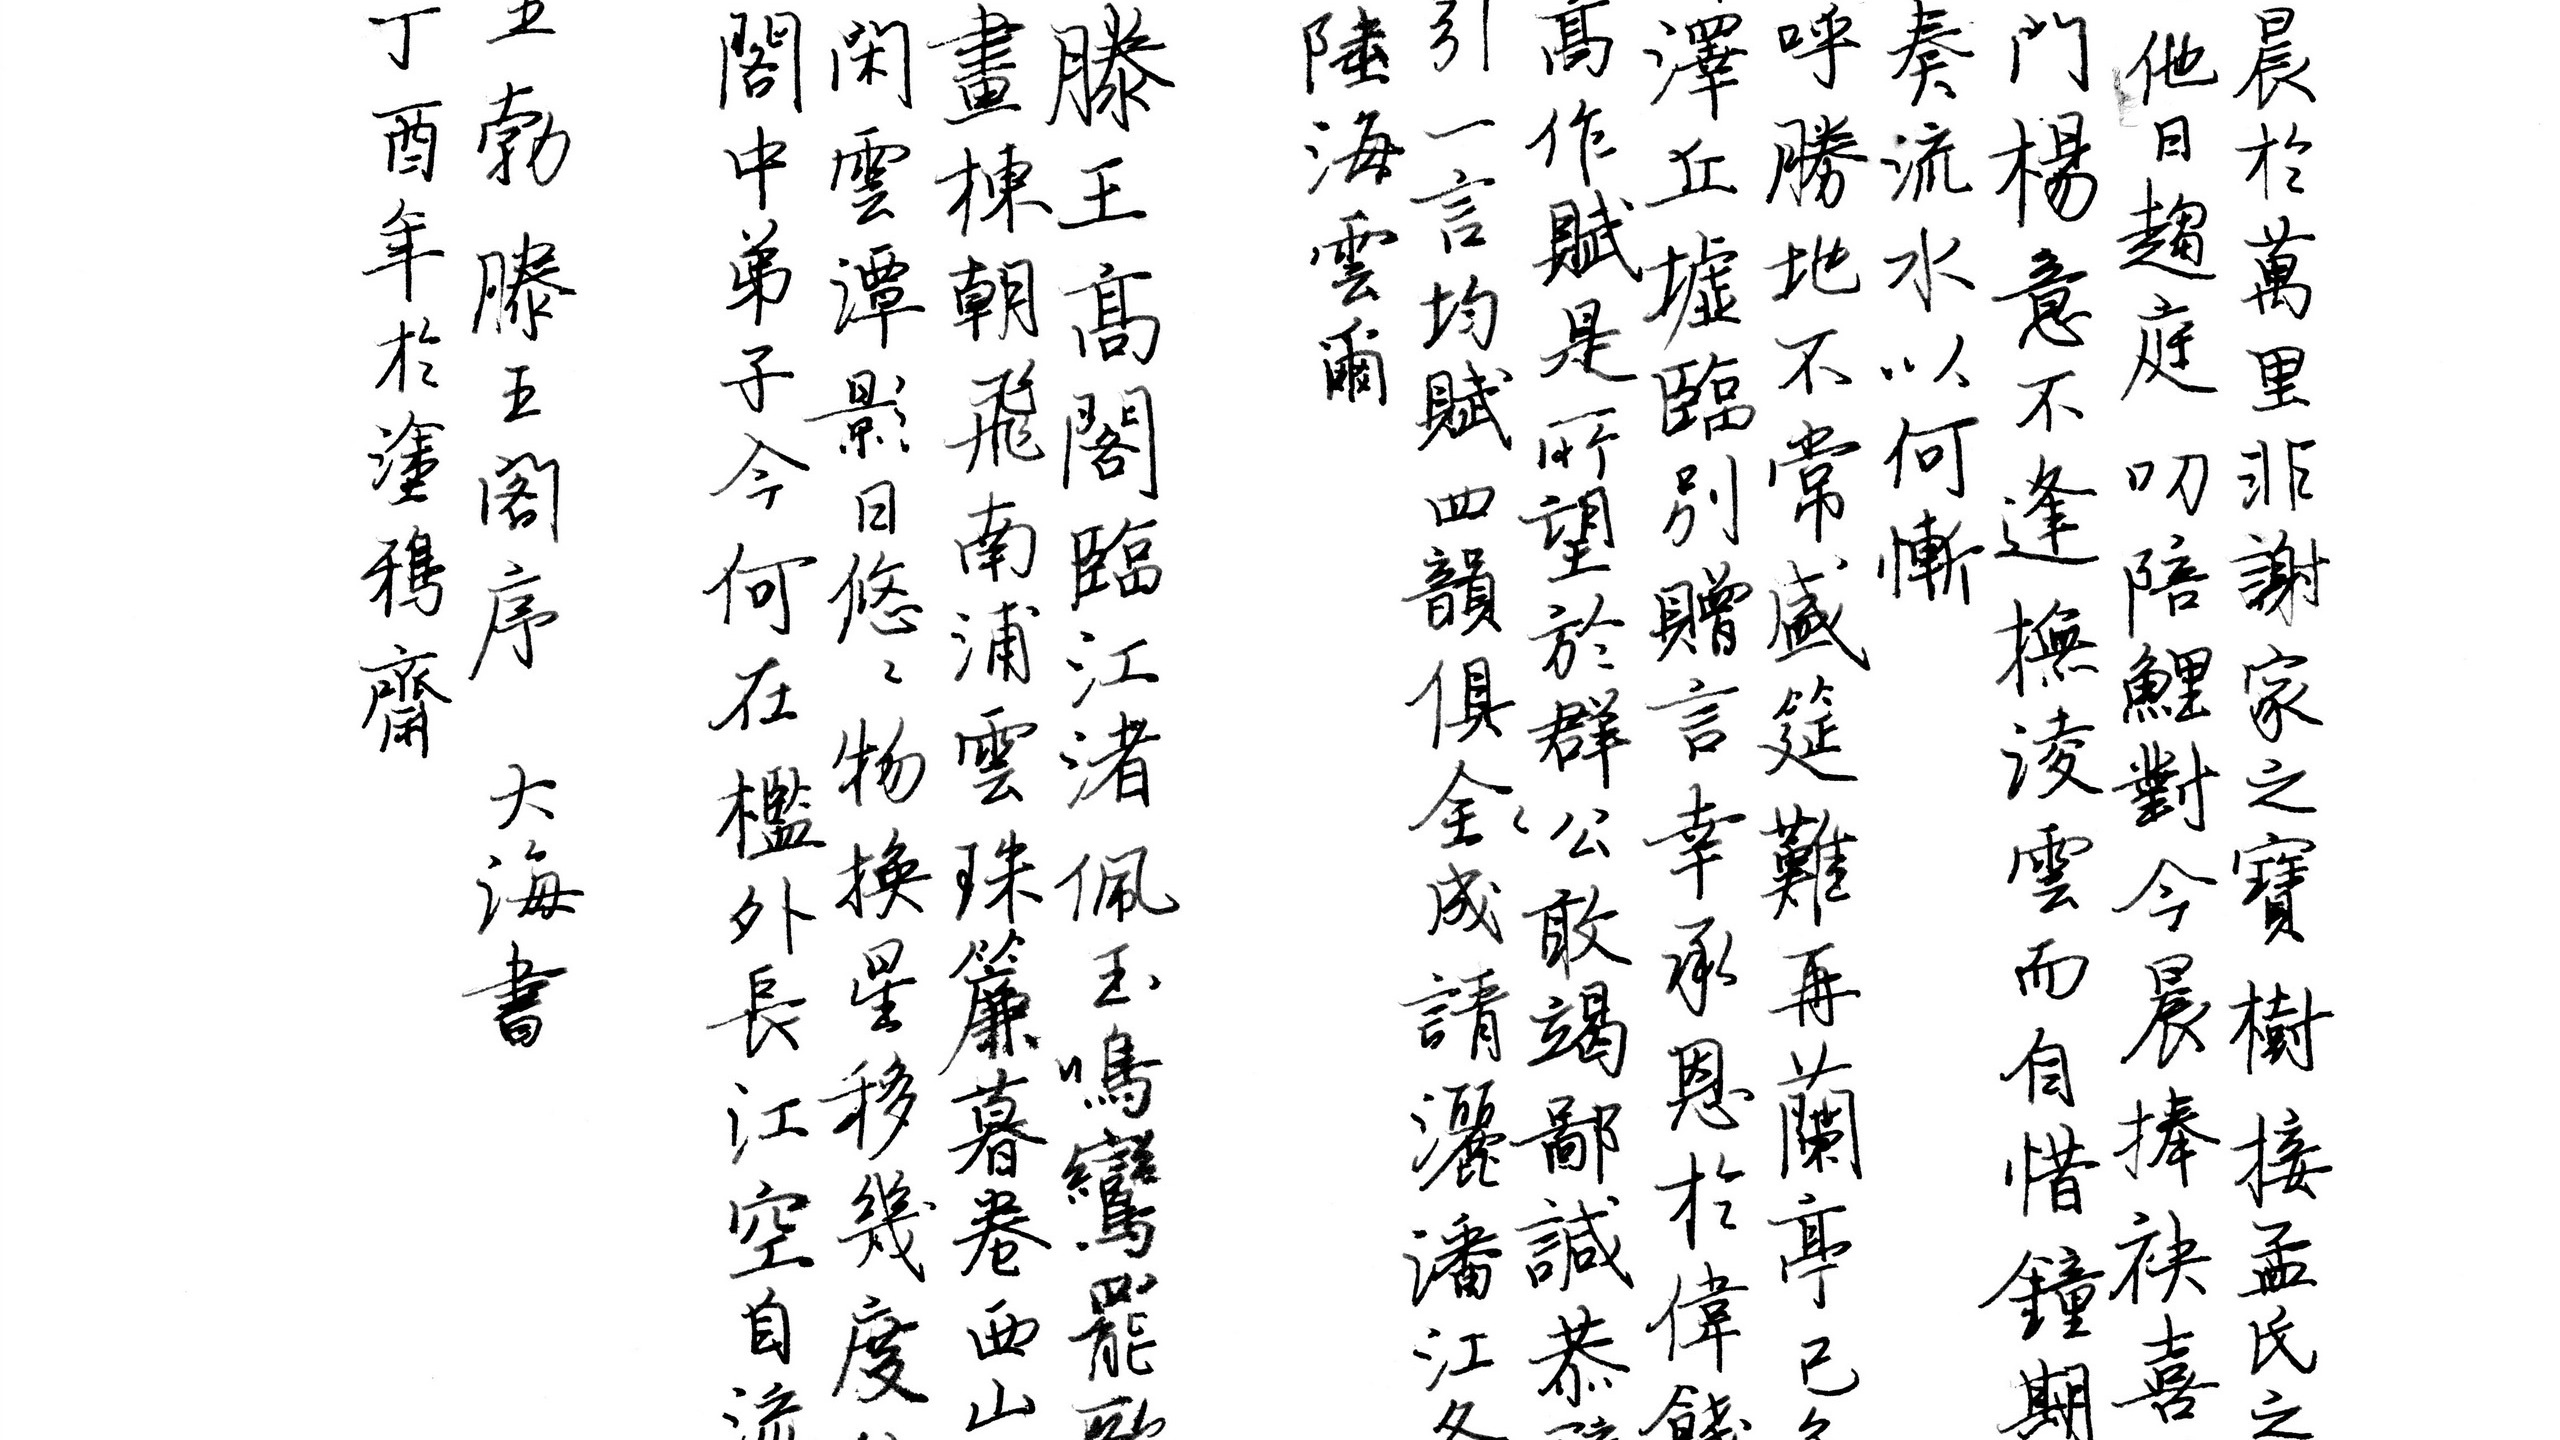 晨於萬里非謝家之寶樹接孟氏之
他日趨庭叨陪鯉對今晨捧袂喜
門楊意不逢撫淩雲而自惜鐘期
奏流水以何慚
呼勝地不常盛筵難再蘭亭已
澤丘墟臨別贈言幸承恩於偉餞
高作賦是所望於群公敢竭鄙誠恭
引一言均賦四韻俱全成請灑潘江各
陸海雲爾
滕王高閣臨江渚佩玉鳴鸞罷歌
畫棟朝飛南浦雲珠簾暮卷西山
閑雲潭影日悠〻物換星移幾度
閣中弟子今何在檻外長江空自流
王勃滕王閣序 大海書
丁酉年於塗鴉齋